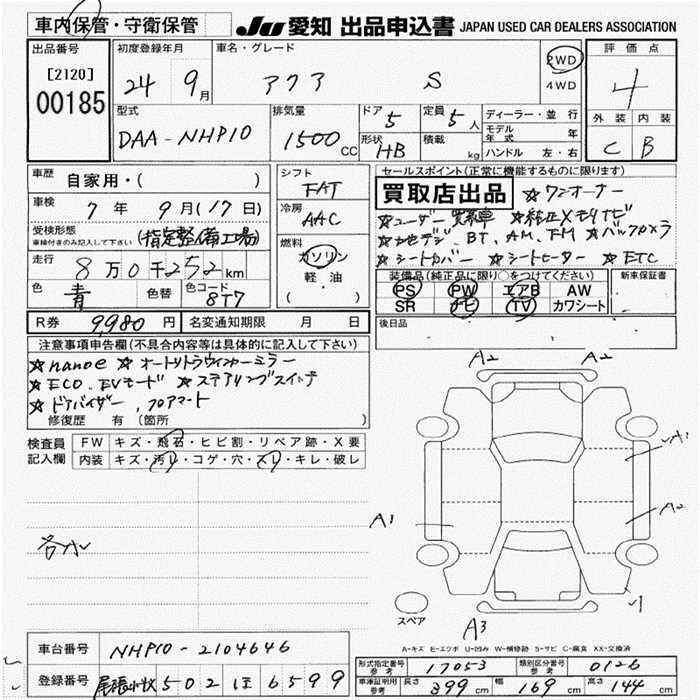 車内保管・守衛保管 JU 愛知 出品申込書 JAPAN USED CAR DEALERS ASSOCIATION
出品番号 初度登録年月 車名・グレード 評価点
[2120] 24 9月 アクア S 2WD 4WD 4
00185
型式 排気量 ドア 5 定員 5人 ディーラー・並行 外装 内装
DAA-NHP10 1500CC 形状 HB 積載 kg モデル年式 年 C B
ハンドル 左・右
車歴 自家用・( ) シフト FAT セールスポイント(正常に機能するものに限ります)
車検 7年 9月(17日) 冷房 AAC 買取店出品 ☆ワンオーナー
受検形態 車検付きのみ記入して下さい (指定整備工場) ☆ユーザー買取車 ☆純正メモリナビ
燃料 ガソリン 軽・油 ( ) ☆フルセグ、BT、AM、FM ☆バックカメラ
走行 8万0千252km ☆シートカバー ☆シートヒーター ☆ETC
色 青 色替 色コード 8T7 装備品(純正品に限り○をつけてください) 新車保証書
PS PW エアB AW
SR ナビ TV カワシート
R券 9,980円 名変通知期限 月 日 後日品
注意事項申告欄(不具合内容等は具体的に記入して下さい)
☆nanoe ☆オートリトラウインカーミラー
☆ECO、EVモード ☆ステアリングスイッチ
☆ドアバイザー、フロアマート
修復歴 有(箇所 )
検査員記入欄 FW キズ・飛石・ヒビ割・リペア跡・X要
内装 キズ・汚れ・コゲ・穴・スレ・キレ・破レ
A2 A2
A1
A1 A2
各小
スペア
A3
A=キズ E=エクボ U=凹み W=補修跡 S=サビ C=腐食 XX=交換済
車台番号 NHP10-2104646
登録番号 尾張小牧 502 ほ 6599
形式指定番号 参考 17053 類別区分番号 参考 0126
車庫証明用 参考 長さ 399cm 幅 169cm 高さ 144cm